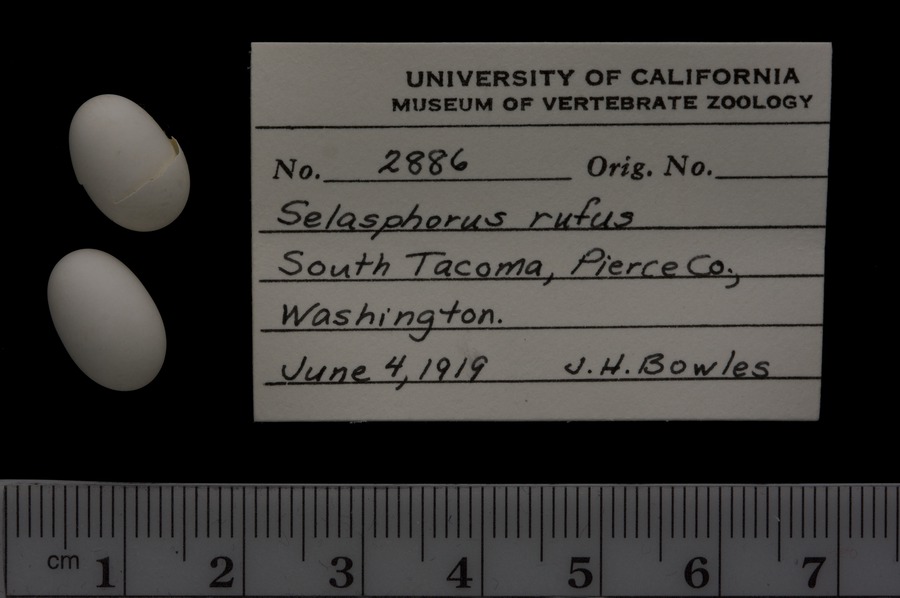 UNIVERSITY OF CALIFORNIA
MUSEUM OF VERTEBRATE ZOOLOGY
No. 2886 Orig. No.
Selasphorus rufus
South Tacoma, Pierce Co.,
Washington.
June 4, 1919 J.H. Bowles
cm 1 2 3 4 5 6 7